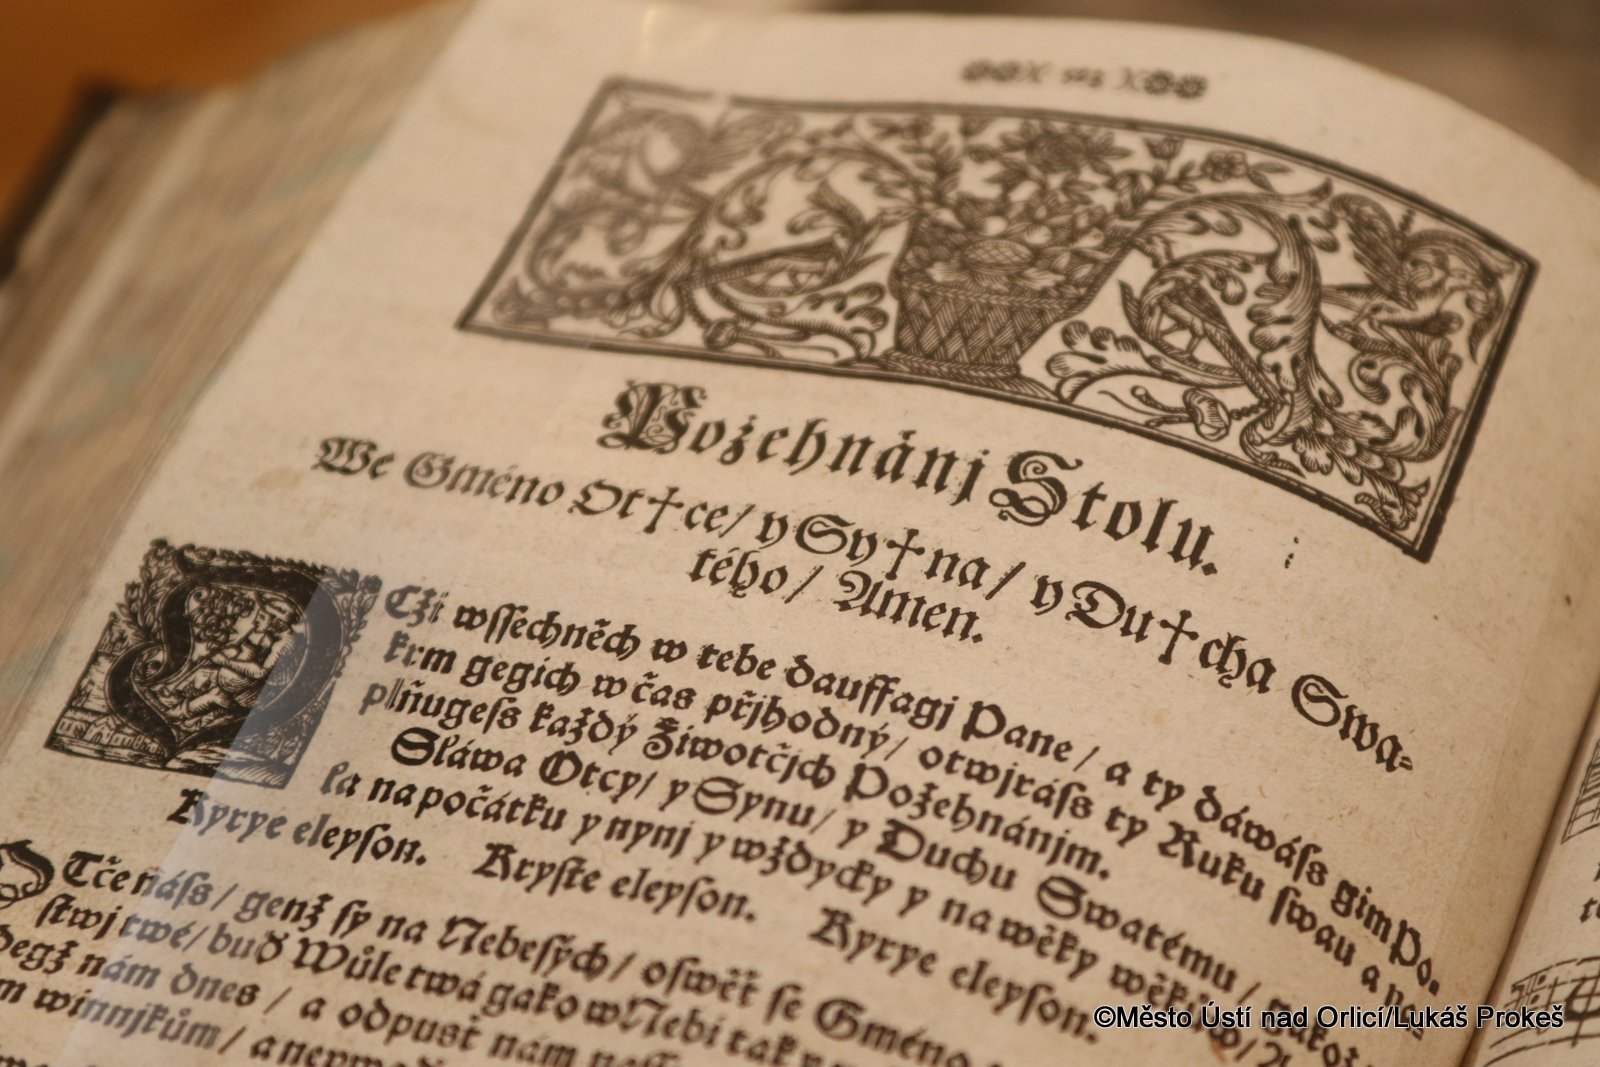 Požehnánj Stolu.
We Gméno Ot✝ce/ y Sy✝na/ y Du✝cha Swa-
tého/ Amen.
OCži wſſechněch w tebe dauffagj Pane/ a ty dáwáſs gim Po-
krm gegich w čas přjhodný/ otwjráſs ty Ruku ſwau a ne-
plňugeſs každý Žiwotčjch Požehnánjm.
Sláwa Otcy/ y Synu/ y Duchu Swatému/ yakož
la na počátku y nynj y wždycky y na wěky wěkůw/ A
Kyrye eleyſon. Kryſte eleyſon. Kyrye eleyſon.
OTče náſs/ genž ſy na Nebeſých/ oſwěť ſe Gméno
ſtwj twé/ buď Wůle twá gako w Nebi tak y
degž nám dnes/ a odpusť nám
m winnjkům/
©Město Ústí nad Orlicí/Lukáš Prokeš